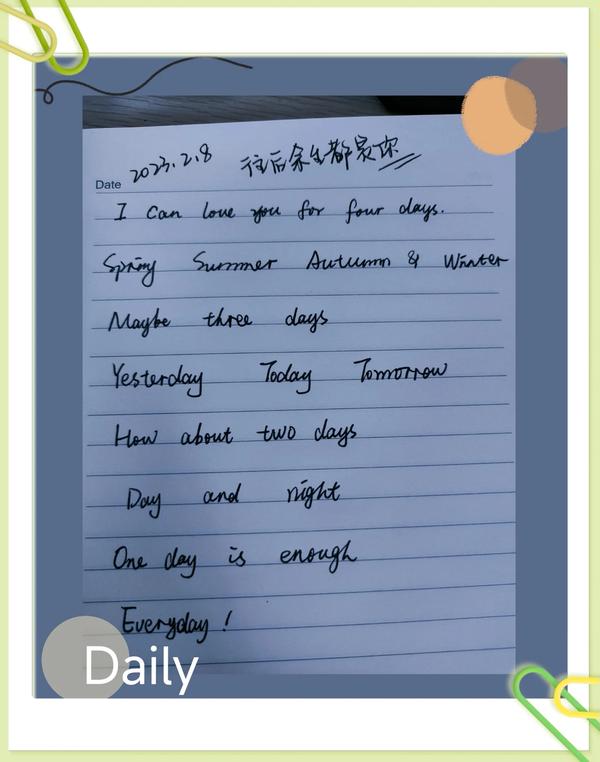 2023.2.8 往后余生都是你
Date
I can love you for four days.
Spring Summer Autumn & Winter
Maybe three days
Yesterday Today Tomorrow
How about two days
Day and night
One day is enough
Everyday!
Daily